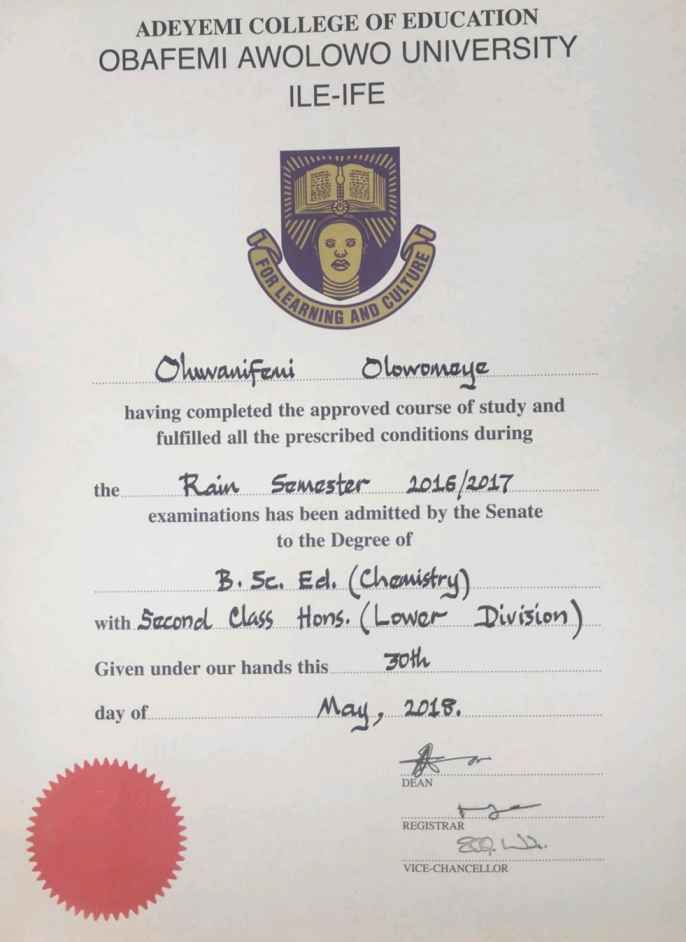 ADEYEMI COLLEGE OF EDUCATION
OBAFEMI AWOLOWO UNIVERSITY
ILE-IFE
FOR LEARNING AND CULTURE
Oluwanifemi Olowomeye
having completed the approved course of study and
fulfilled all the prescribed conditions during
the Rain Semester 2016/2017
examinations has been admitted by the Senate
to the Degree of
B. Sc. Ed. (Chemistry)
with Second Class Hons. (Lower Division)
Given under our hands this 30th
day of May, 2018.
DEAN
REGISTRAR
VICE-CHANCELLOR